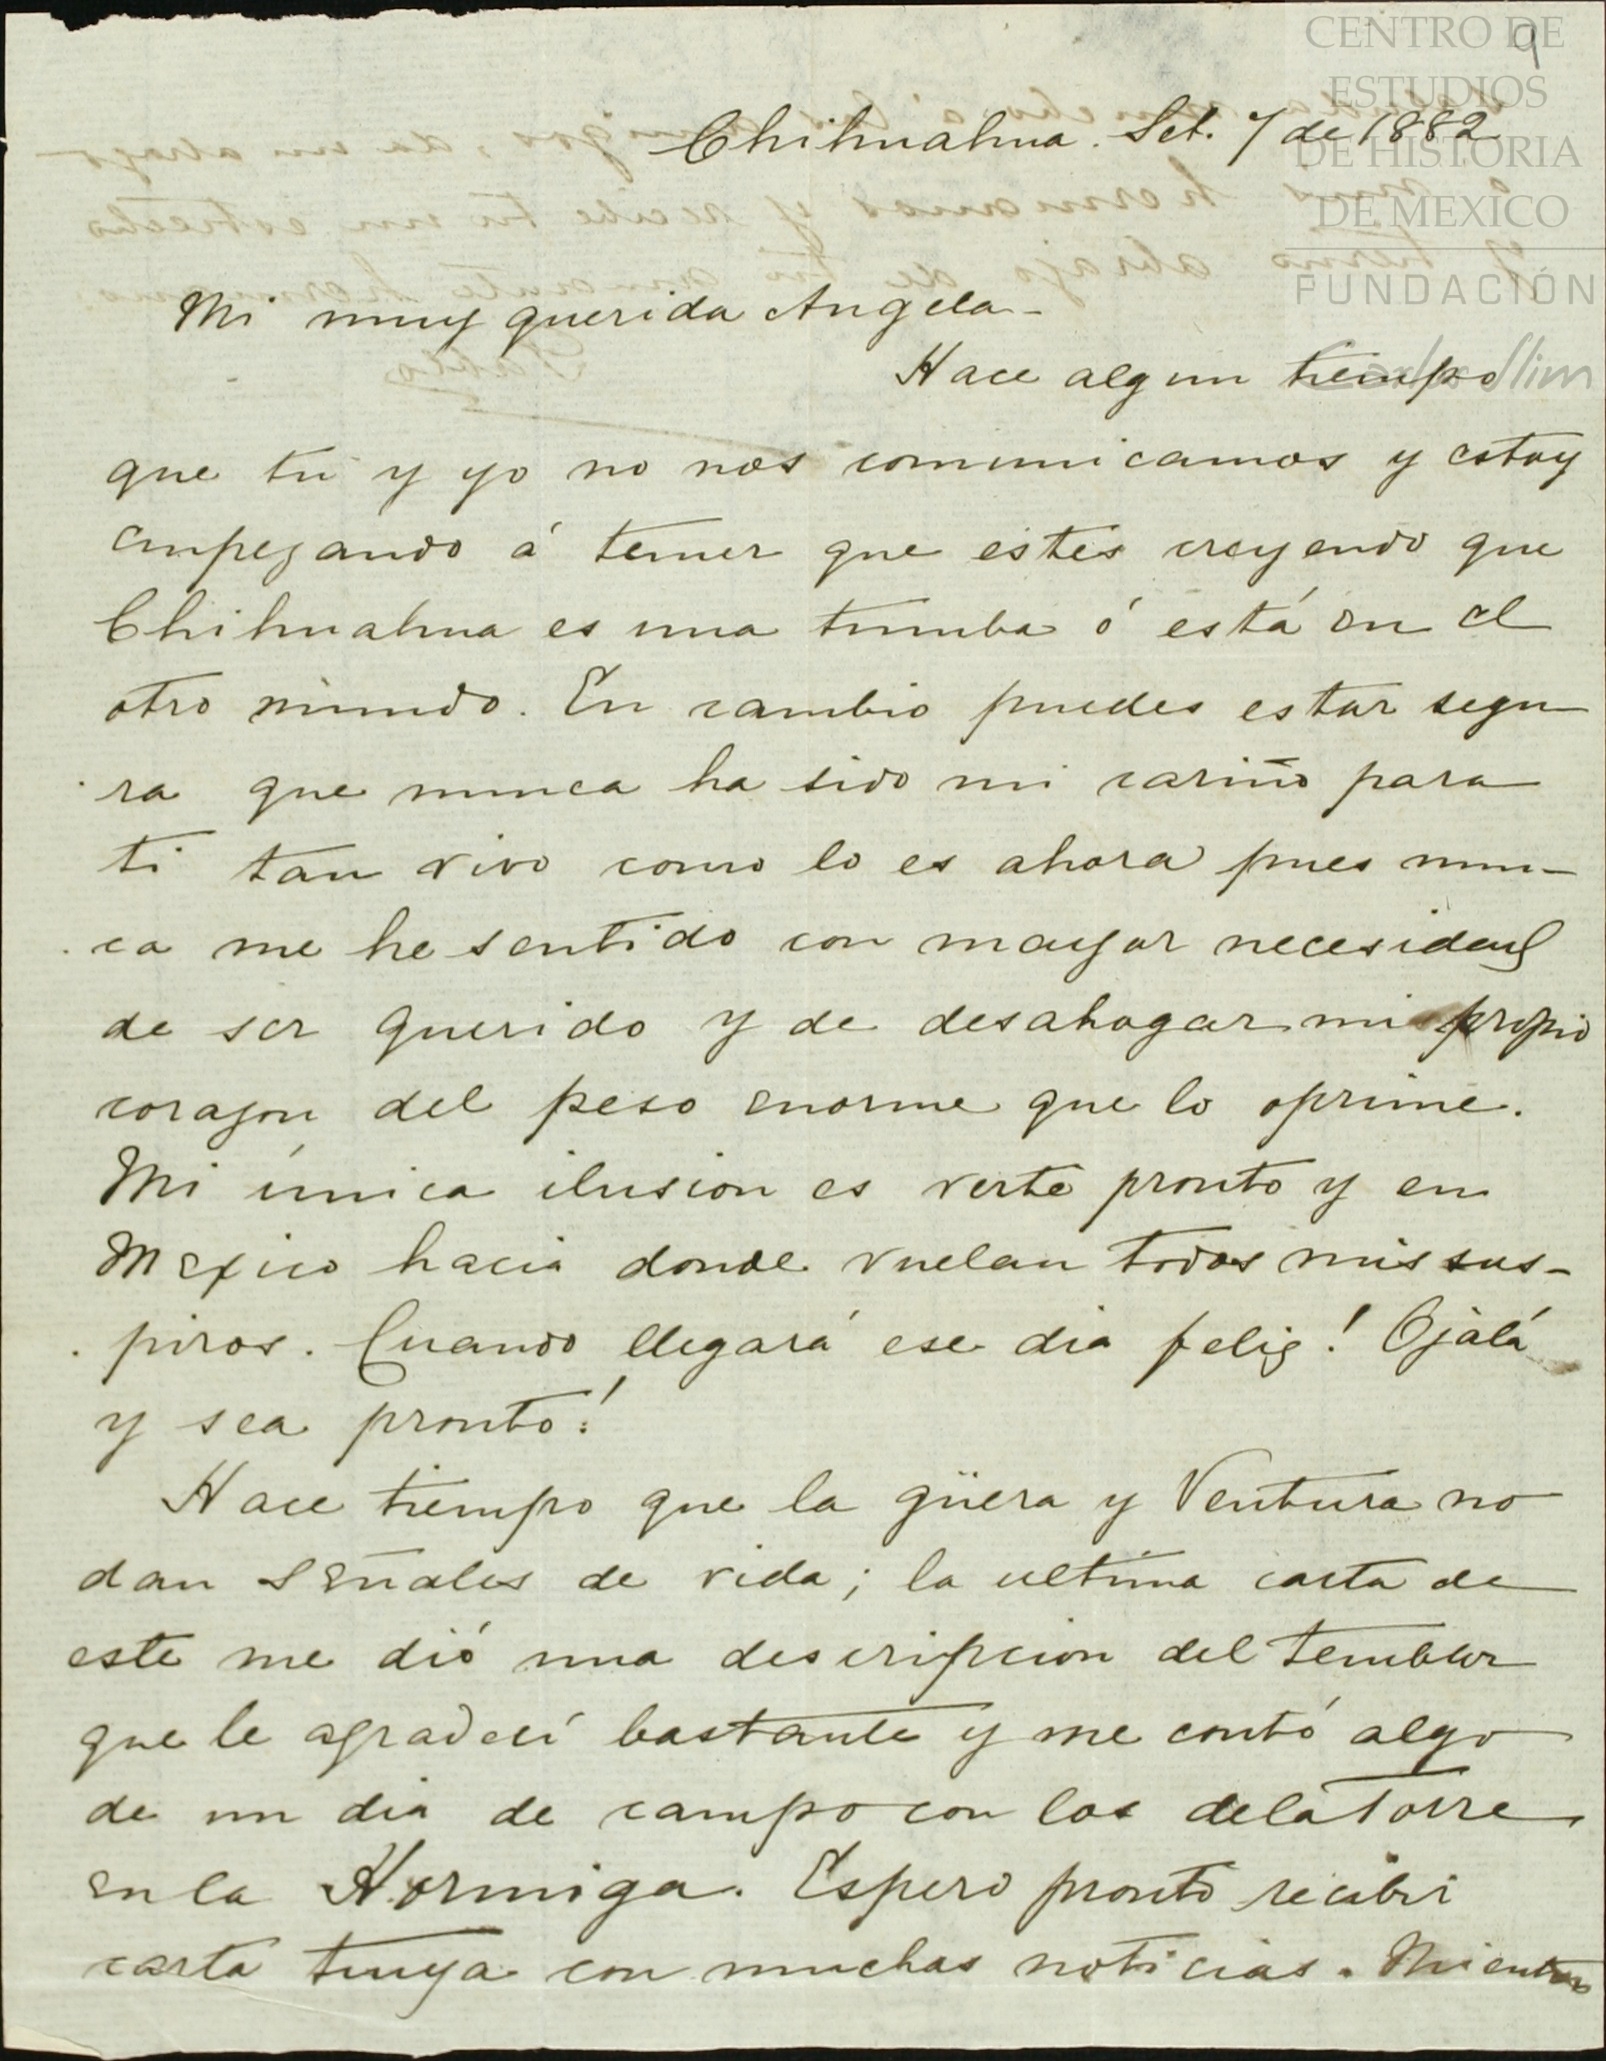 CENTRO DE
ESTUDIOS
DE HISTORIA
DE MEXICO
FUNDACIÓN
Carlos Slim
9
Chihuahua. Set. 7 de 1882
Mi muy querida Angela-
Hace algun tiempo
que tu y yo no nos comunicamos y estoy
empezando á temer que estés creyendo que
Chihuahua es una tumba ó está en el
otro mundo. En cambio puedes estar segu
ra que nunca ha sido mi cariño para
ti tan vivo como lo es ahora pues nun-
ca me he sentido con mayor necesidad
de ser querido y de desahogar mi propio
corazon del peso enorme que lo oprime.
Mi única ilusion es verte pronto y en
Mexico hacia donde vuelan todos mis sus-
piros. Cuando llegará ese dia feliz! Ojalá
y sea pronto!
Hace tiempo que la güera y Ventura no
dan señales de vida; la ultima carta de
este me dió una descripcion del temblor
que le agradecí bastante y me contó algo
de un dia de campo con los de la Torre
en la Hormiga. Espero pronto recibir
carta tuya con muchas noticias. Mientras